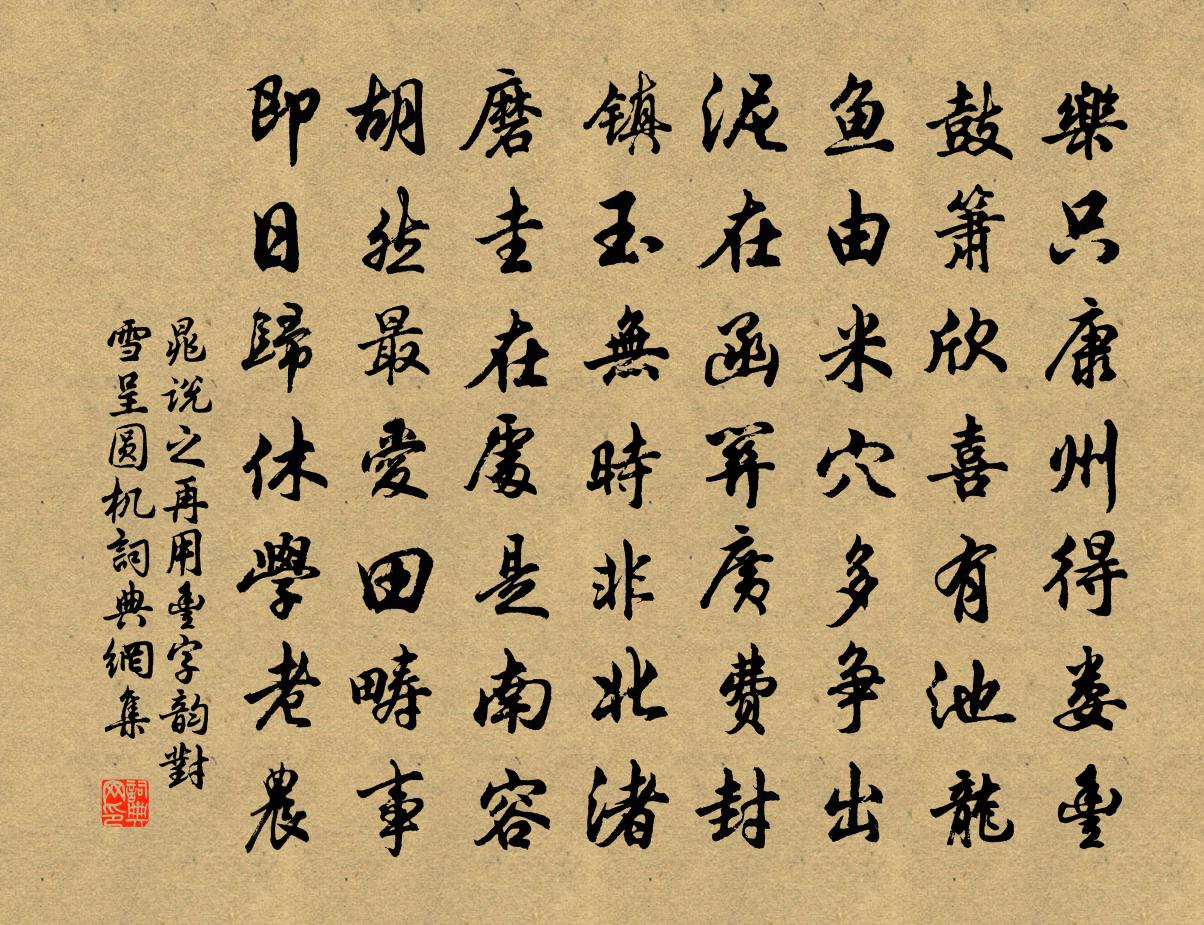 樂只康州得娄豊
鼓箫欣喜有池龍
鱼由米穴多争出
泥在函关廣费封
镇玉無時非北渚
磨圭在處是南容
胡然最愛田疇事
即日歸休學老農
晁说之再用豊字韵對
雪呈圆机詞典網集
詞典
网印